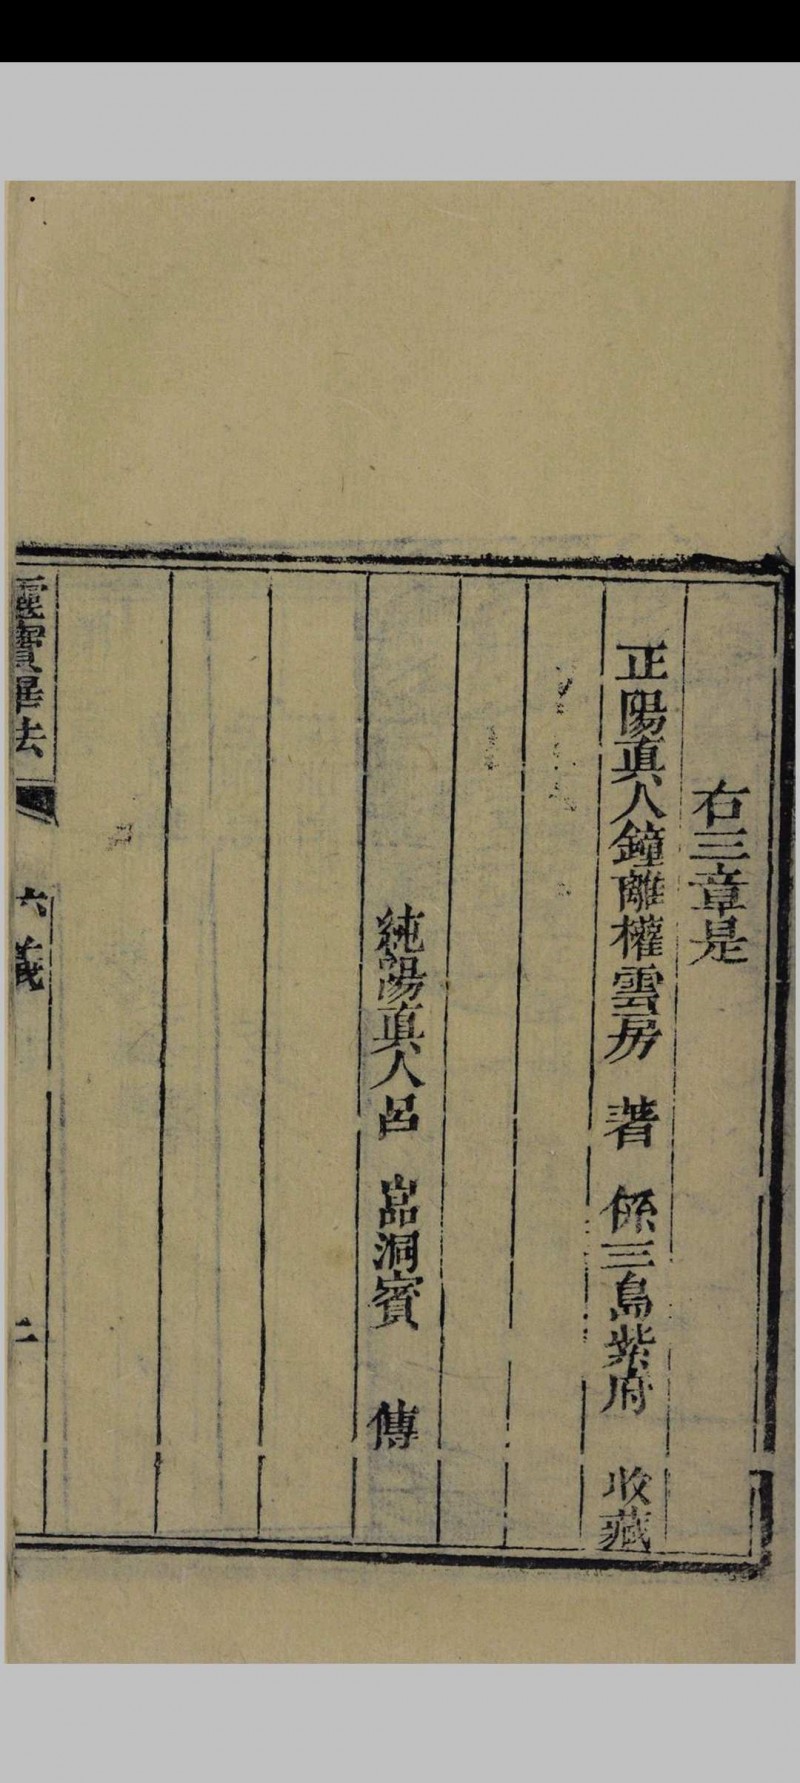 右三章是
正陽真人鐘離權雲房 著 係三島紫府 收藏
純陽真人呂 嵓洞賓 傳
靈寶畢法 六義 二